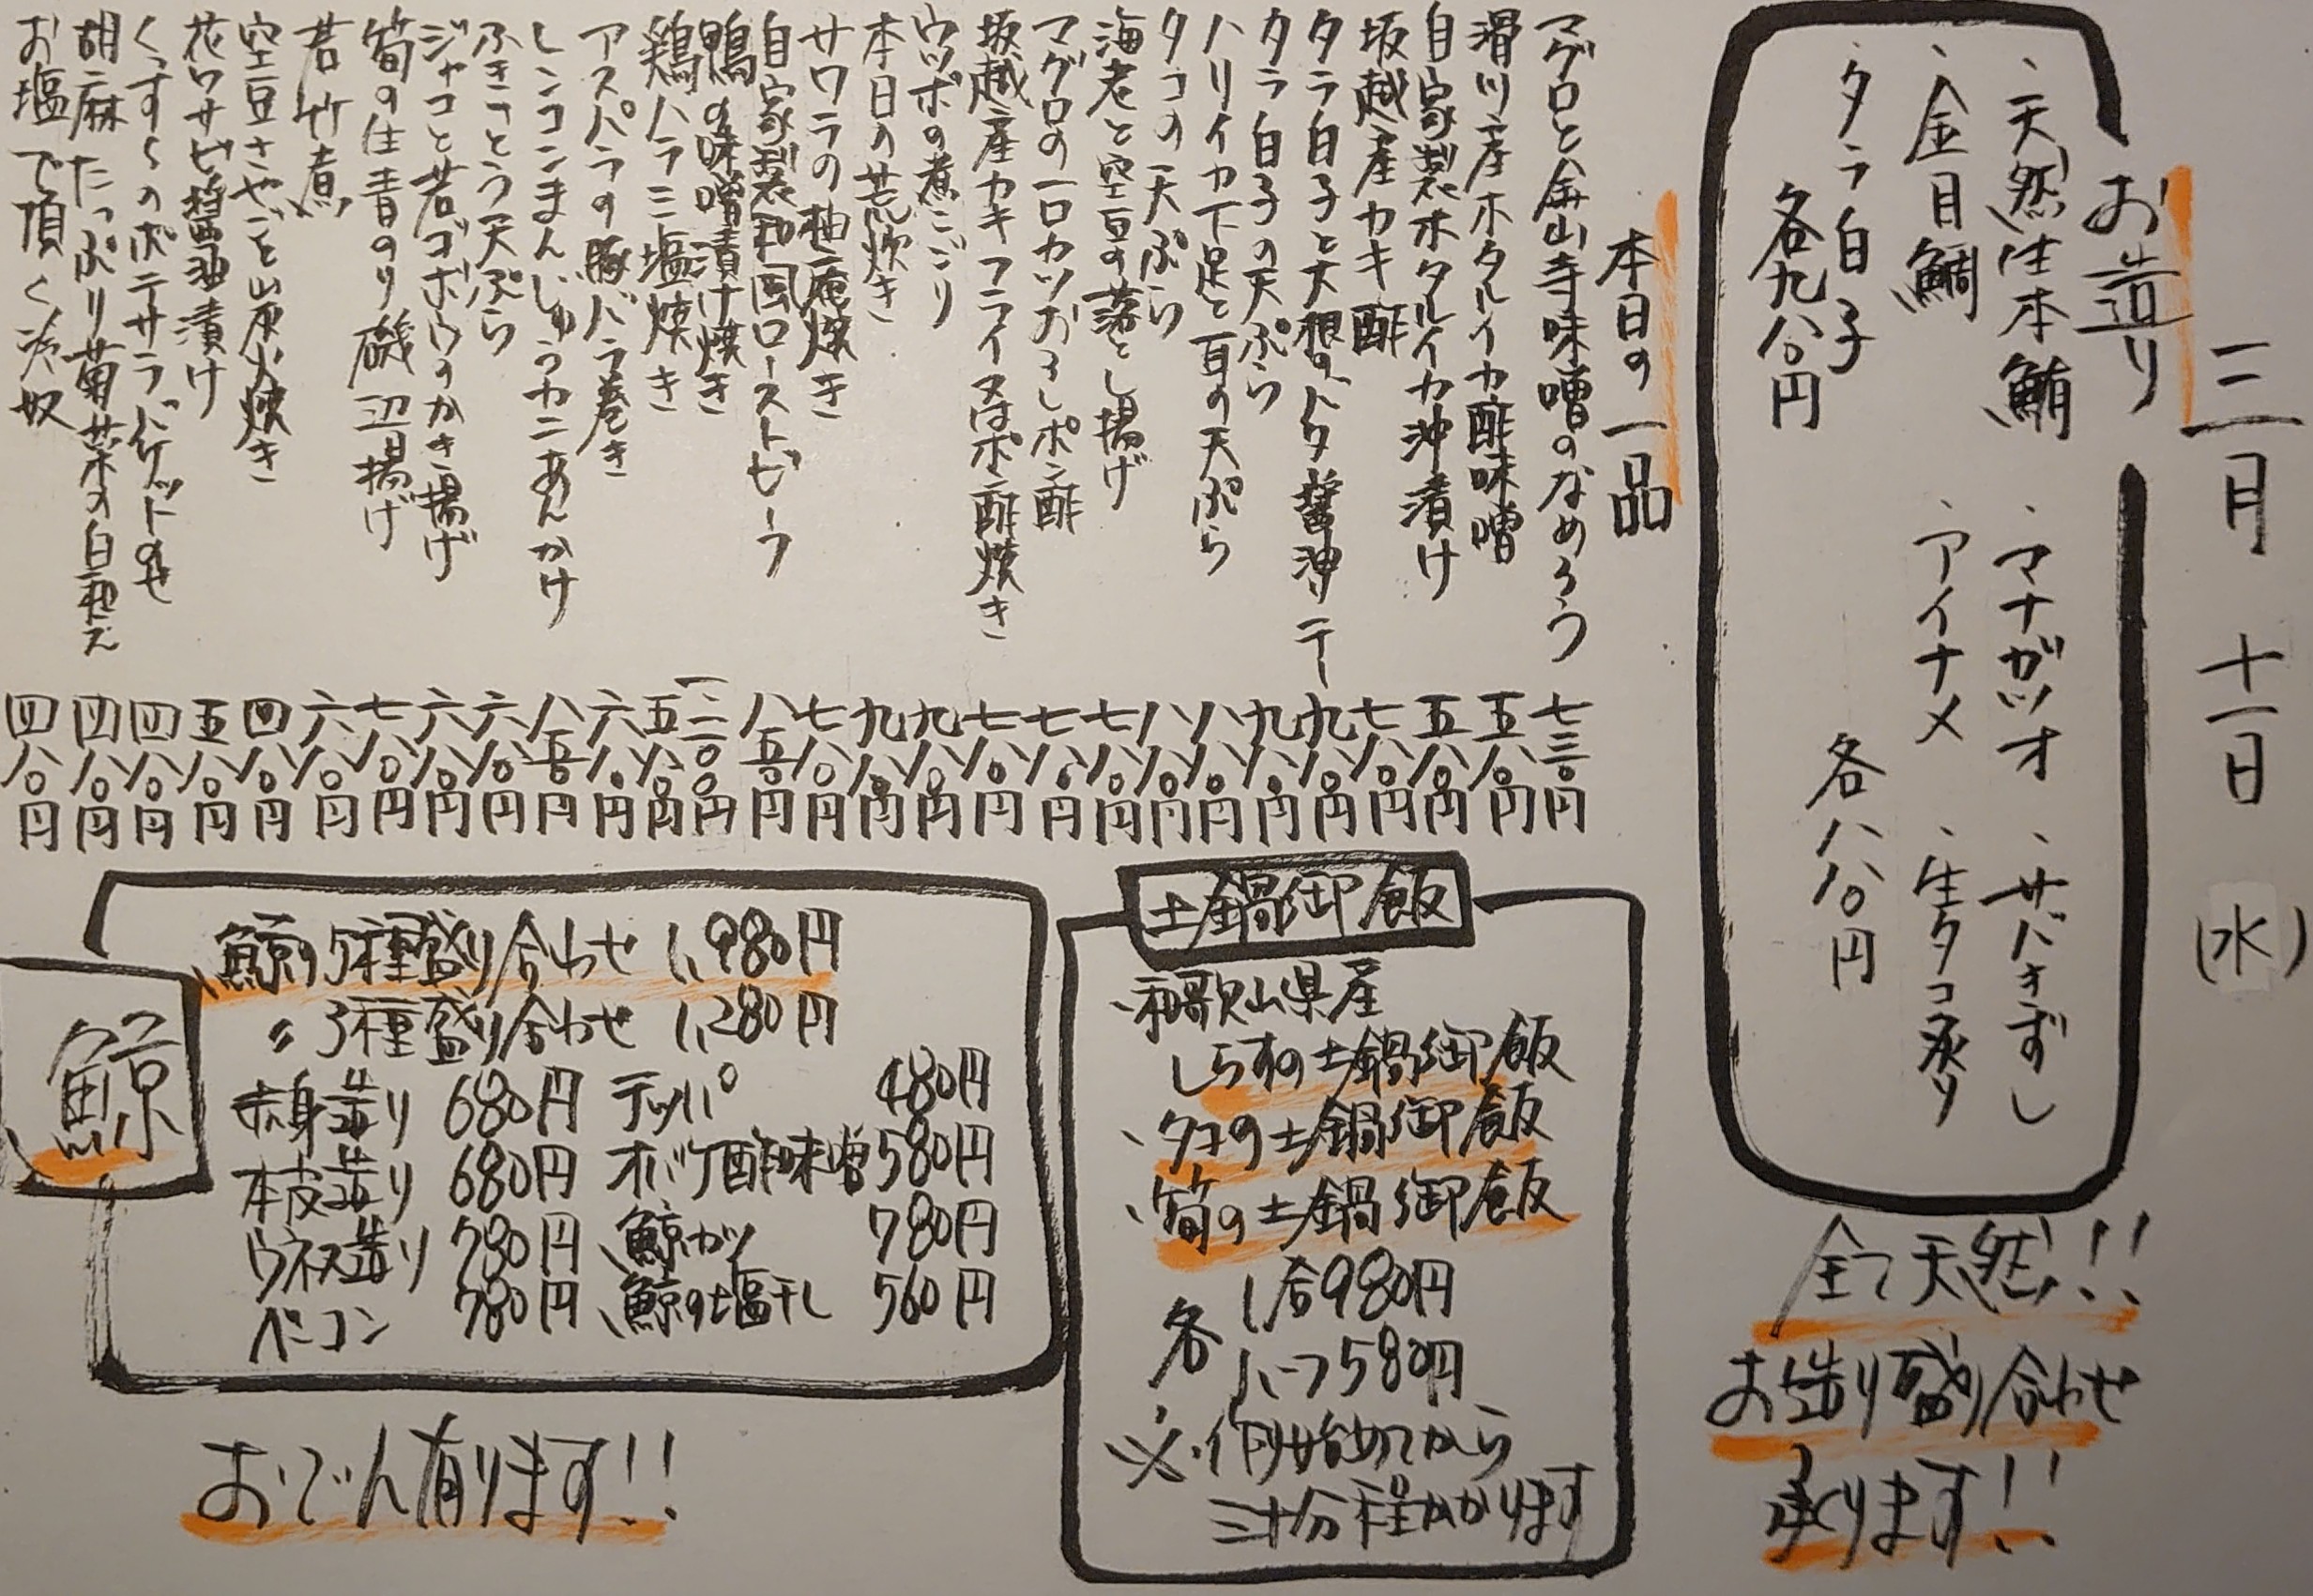 三月十一日(水)
お造り
・天然生本鮪 ・マナガツオ ・サバきずし
・金目鯛 ・アイナメ ・生タコ炙り
・タラ白子 各八八〇円
各九八〇円
全て天然!!
お造り盛り合わせ
承ります!!
本日の一品
マグロと金山寺味噌のなめろう 七三〇円
滑川産ホタルイカ酢味噌 五八〇円
自家製ホタルイカ沖漬け 五八〇円
坂越産カキ酢 七八〇円
タラ白子と大根のバター醤油ソテー 九八〇円
タラ白子の天ぷら 九八〇円
ハリイカ下足と耳の天ぷら 八八〇円
タコの天ぷら 八八〇円
海老と空豆の落とし揚げ 七八〇円
マグロの一口カツおろしポン酢 七八〇円
坂越産カキフライ又はポン酢焼き 七八〇円
ウツボの煮こごり 九八〇円
本日の荒炊き 九八〇円
サワラの柚庵焼き 七八〇円
自家製和風ローストビーフ 八五〇円
鴨の味噌漬け焼き 一二〇〇円
鶏ハラミ塩焼き 五八〇円
アスパラの豚バラ巻き 六八〇円
レンコンまんじゅうカニあんかけ 八五〇円
ふきのとう天ぷら 六八〇円
ジャコと若ゴボウのかき揚げ 六八〇円
筍の生青のり磯辺揚げ 七八〇円
若竹煮 六八〇円
空豆さやごと炭火焼き 四八〇円
花ワサビ醤油漬け 五八〇円
くずし のポテサラ バゲットのせ 四八〇円
胡麻たっぷり菊菜の白和え 四八〇円
お塩で頂く冷奴 四八〇円
土鍋御飯
・和歌山県産
しらすの土鍋御飯
・タコの土鍋御飯
・筍の土鍋御飯
各 1合980円
ハーフ580円
※作り始めてから
三十分程かかります
鯨
・鯨の5種盛り合わせ 1,980円
〃 3種盛り合わせ 1,280円
赤身造り 680円 テッパ 480円
本皮造り 680円 オバケ酢味噌 580円
ウネス造り 780円 ・鯨カツ 780円
ベーコン 780円 ・鯨の塩干し 560円
おでん有ります!!